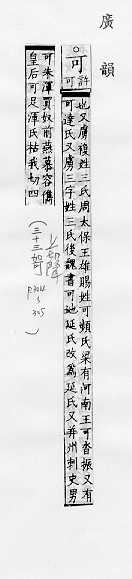 廣韻
○可許也又虜複姓三氏周太保王雄賜姓可頻氏梁有河南王可沓振又有
可達氏又虜三字姓三氏後魏書可地延氏改為延氏又并州刺史男
可朱渾買奴前燕慕容儁
皇后可足渾氏枯我切四
上聲
(三十三哿)
P304
~
305